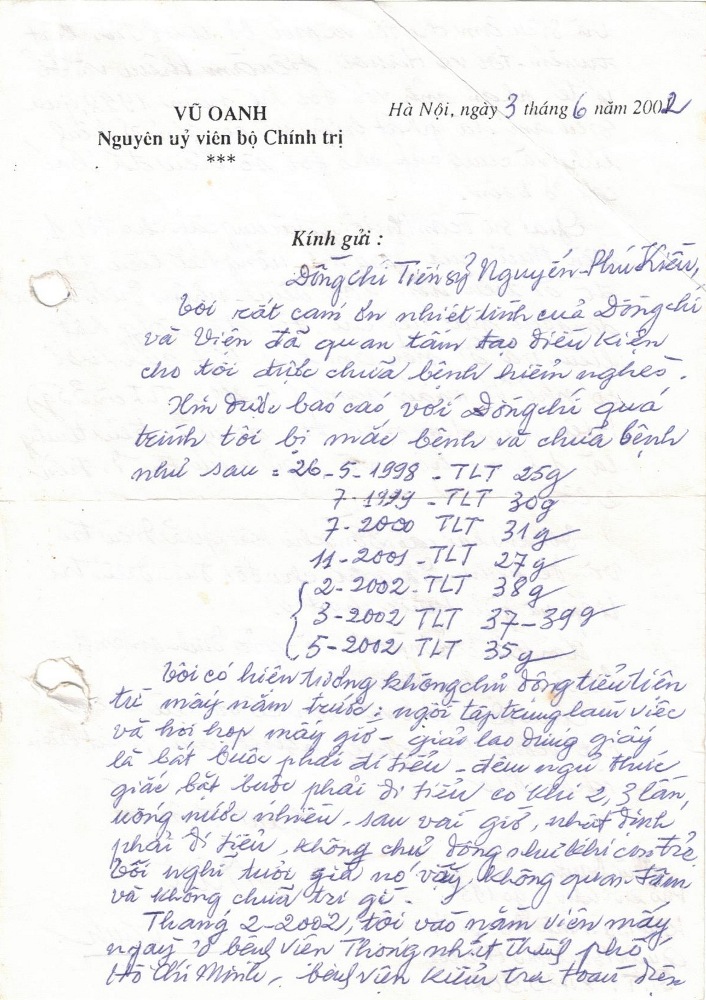 VŨ OANH
Nguyên uỷ viên bộ Chính trị
***
Hà Nội, ngày 3 tháng 6 năm 2002
Kính gửi :
Đồng chí Tiến sỹ Nguyễn Phú Kiều,
Tôi rất cám ơn nhiệt tình của Đồng chí
và Viện đã quan tâm tạo điều kiện
cho tôi được chữa bệnh hiểm nghèo.
Xin được báo cáo với Đồng chí quá
trình tôi bị mắc bệnh và chữa bệnh
như sau : 26-5-1998 - TLT 25g
7-1999 - TLT 30g
7-2000 TLT 31g
11-2001 - TLT 27g
2-2002 - TLT 38g
3-2002 TLT 37-39g
5-2002 TLT 35g
Tôi có hiện tượng không chủ động tiểu tiện
từ mấy năm trước : ngồi tập trung làm việc
và hội họp mấy giờ - giải lao đứng giậy
là bắt buộc phải đi tiểu - đêm ngủ thức
giấc bắt buộc phải đi tiểu có khi 2, 3 lần,
uống nước nhiều, sau vài giờ, nhất định
phải đi tiểu, không chủ động như khi còn trẻ.
Tôi nghĩ tuổi già nó vậy, không quan tâm
và không chữa trị gì.
Tháng 2-2002, tôi vào nằm viện mấy
ngày ở bệnh viện Thống nhất Thành phố
Hồ Chí Minh, bệnh viện kiểm tra toàn diện